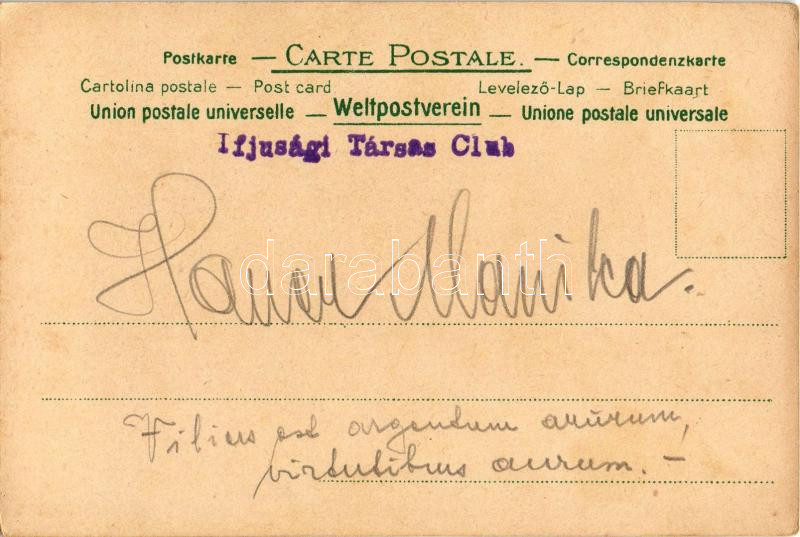 Postkarte — CARTE POSTALE. — Correspondenzkarte
Cartolina postale — Post card Levelező-Lap — Briefkaart
Union postale universelle — Weltpostverein — Unione postale universale
Ifjusági Társas Club
Hauer Manika.
darabanth
Vilius est argentum aurum,
virtutibus aurum. –